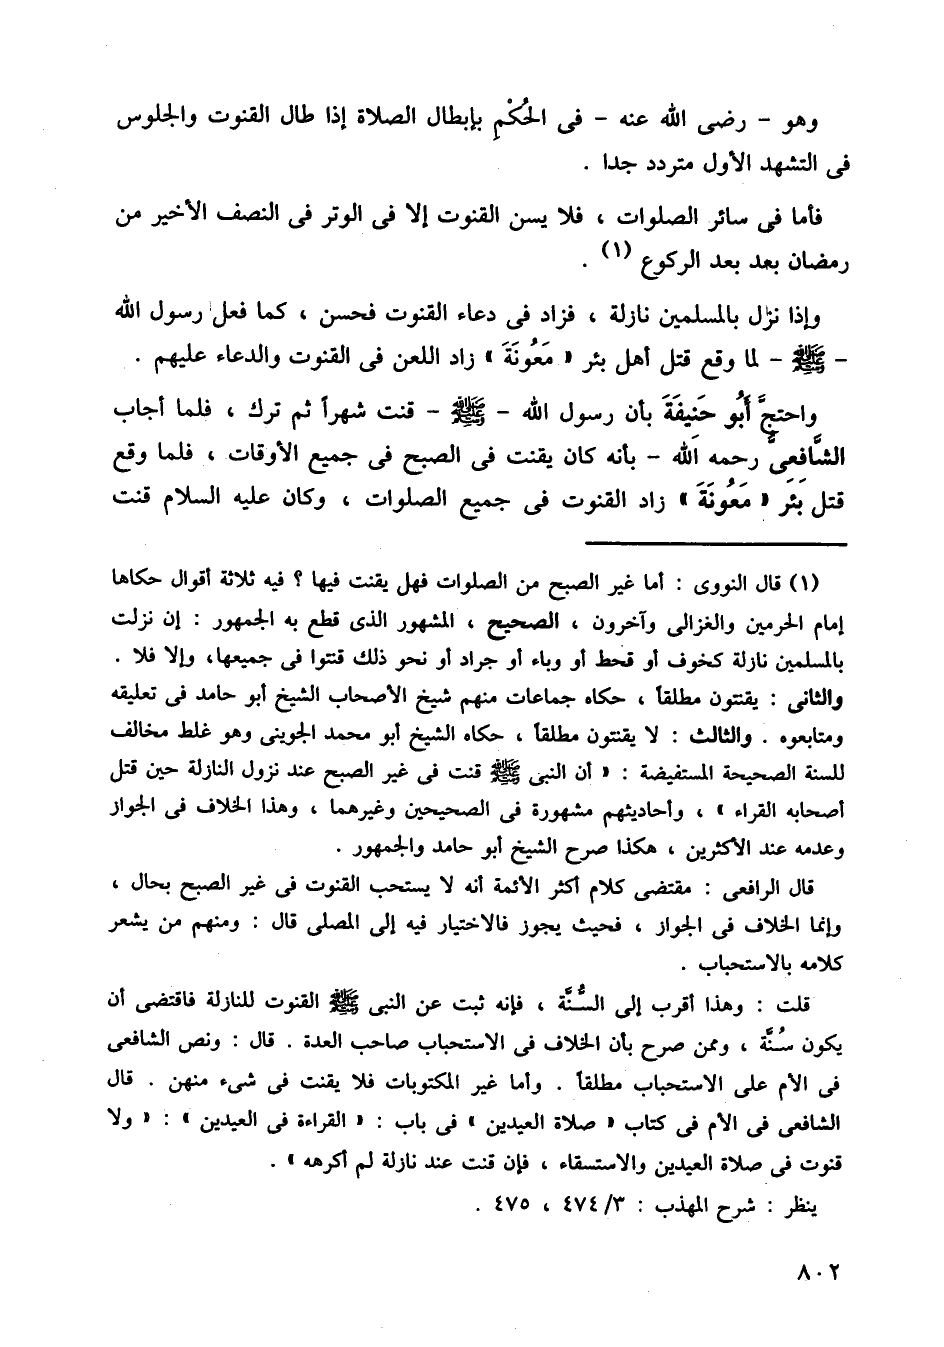 وهو - رضى الله عنه - فى الحُكْمِ بإبطال الصلاة إذا طال القنوت والجلوس
فى التشهد الأول متردد جدا .
فأما فى سائر الصلوات ، فلا يسن القنوت إلا فى الوتر فى النصف الأخير من
رمضان بعد بعد الركوع (١) .
وإذا نزل بالمسلمين نازلة ، فزاد فى دعاء القنوت فحسن ، كما فعل رسول الله
- ﷺ - لما وقع قتل أهل بئر « مَعُونَةَ » زاد اللعن فى القنوت والدعاء عليهم .
واحتجَّ أَبُو حَنِيفَةَ بأن رسول الله - ﷺ - قنت شهراً ثم ترك ، فلما أجاب
الشَّافعىُّ رحمه الله - بأنه كان يقنت فى الصبح فى جميع الأوقات ، فلما وقع
قتل بَئَر « مَعُونَةَ » زاد القنوت فى جميع الصلوات ، وكان عليه السلام قنت
(١) قال النووى : أما غير الصبح من الصلوات فهل يقنت فيها ؟ فيه ثلاثة أقوال حكاها
إمام الحرمين والغزالى وآخرون ، الصحيح ، المشهور الذى قطع به الجمهور : إن نزلت
بالمسلمين نازلة كخوف أو قحط أو وباء أو جراد أو نحو ذلك قنتوا فى جميعها، وإلا فلا .
والثانى : يقنتون مطلقاً ، حكاه جماعات منهم شيخ الأصحاب الشيخ أبو حامد فى تعليقه
ومتابعوه . والثالث : لا يقنتون مطلقاً ، حكاه الشيخ أبو محمد الجوينى وهو غلط مخالف
للسنة الصحيحة المستفيضة : « أن النبى ﷺ قنت فى غير الصبح عند نزول النازلة حين قتل
أصحابه القراء » ، وأحاديثهم مشهورة فى الصحيحين وغيرهما ، وهذا الخلاف فى الجواز
وعدمه عند الأكثرين ، هكذا صرح الشيخ أبو حامد والجمهور .
قال الرافعى : مقتضى كلام أكثر الأئمة أنه لا يستحب القنوت فى غير الصبح بحال ،
وإنما الخلاف فى الجواز ، فحيث يجوز فالاختيار فيه إلى المصلى قال : ومنهم من يشعر
كلامه بالاستحباب .
قلت : وهذا أقرب إلى السُّنَّة ، فإنه ثبت عن النبى ﷺ القنوت للنازلة فاقتضى أن
يكون سُنَّة ، وممن صرح بأن الخلاف فى الاستحباب صاحب العدة . قال : ونص الشافعى
فى الأم على الاستحباب مطلقاً . وأما غير المكتوبات فلا يقنت فى شىء منهن . قال
الشافعى فى الأم فى كتاب « صلاة العيدين » فى باب : « القراءة فى العيدين » : « ولا
قنوت فى صلاة العيدين والاستسقاء ، فإن قنت عند نازلة لم أكرهه » .
ينظر : شرح المهذب : ٣/ ٤٧٤ ، ٤٧٥ .
٨٠٢